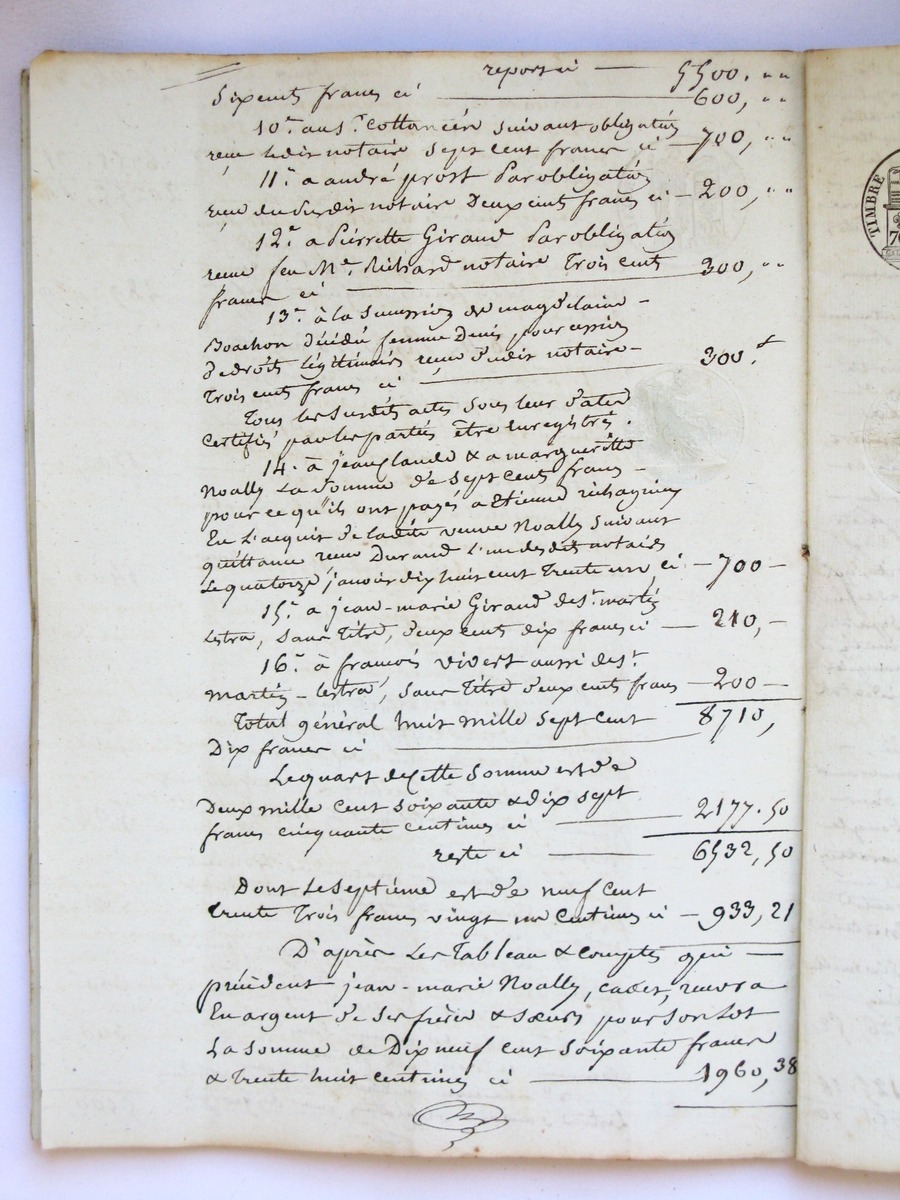 report ci — 5500. " "
Six cents francs ci — 600, " "
10.° au S.r Cottancin suivant obligation
reçue ledit notaire Sept Cent francs ci — 700, " "
11.° a andré prost Par obligation
reçue du Susdit notaire Deux cents francs ci — 200, " "
12.° a Pierrette Giraud Par obligation
reçue feu M.e Richard notaire Trois Cents
francs ci — 300, " "
13.° à la Succession de magdelaine –
Boachon décédée femme Denis, pour cession
de droits légitimaires reçue dudit notaire –
Trois cents francs ci — 300.f
Tous les Susdits actes Sous leur date
Certifiés par les parties être Enregistrés.
14.° à jean Claude & a marguerite
Noally La Somme de Sept Cents francs –
pour ce qu'ils ont payés a Etienne
En L'acquit de ladite veuve Noally Suivant
quittance reçue Durand L'un desdits notaires
Le quatorze janvier dix huit cent Trente un ci – 700 –
15.° a jean-marie Giraud de S.t martin
Lestra, Sans Titre, deux cents dix francs ci — 210, –
16.° à francois vivert aussi de S.t
martin – Lestra, Sans Titre deux cents francs – 200 –
Total général huit mille Sept Cent — 8710,
Dix francs ci —
Le quart de Cette Somme est de
Deux mille Cent Soixante & dix Sept
francs cinquante Centimes ci — 2177.50
reste ci — 6532,50
Dont Le Septième est de neuf Cent
trente Trois francs vingt un Centimes ci – 933,21
D'après Les Tableau & Comptes qui —
précèdent jean-marie Noally, cadet, recevra
En argent de Ses frères & Sœurs pour Son Lot
La Somme de Dix neuf Cent Soixante francs
& Trente huit Centimes ci — 1960,38
TIMBRE